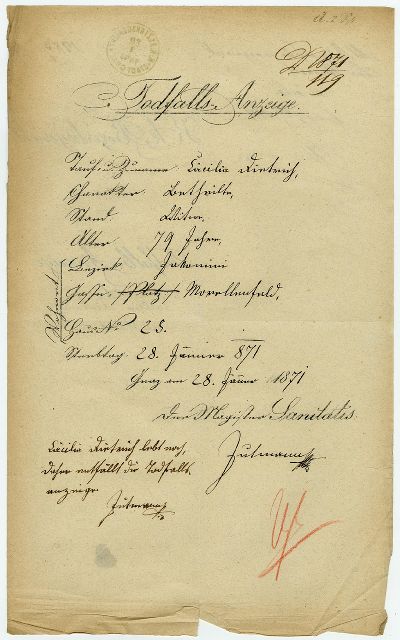 A. 2 Sp
D 1871
119
Todfalls-Anzeige.
Tauf- u. Zuname Cäcilia Dietrich,
Charakter Betheilte,
Stand Witwe,
Alter 79 Jahre,
Wohnort
Bezirk Jakomini
Gasse, Platz Morellenfeld,
Haus No 25.
Sterbtag 28. Jänner 871
Graz am 28. Jänner 1871
Der Magister Sanitatis.
Gutmann
Cäcilia Dietrich lebt noch,
daher entfällt die Todfalls-
anzeige
Gutmann